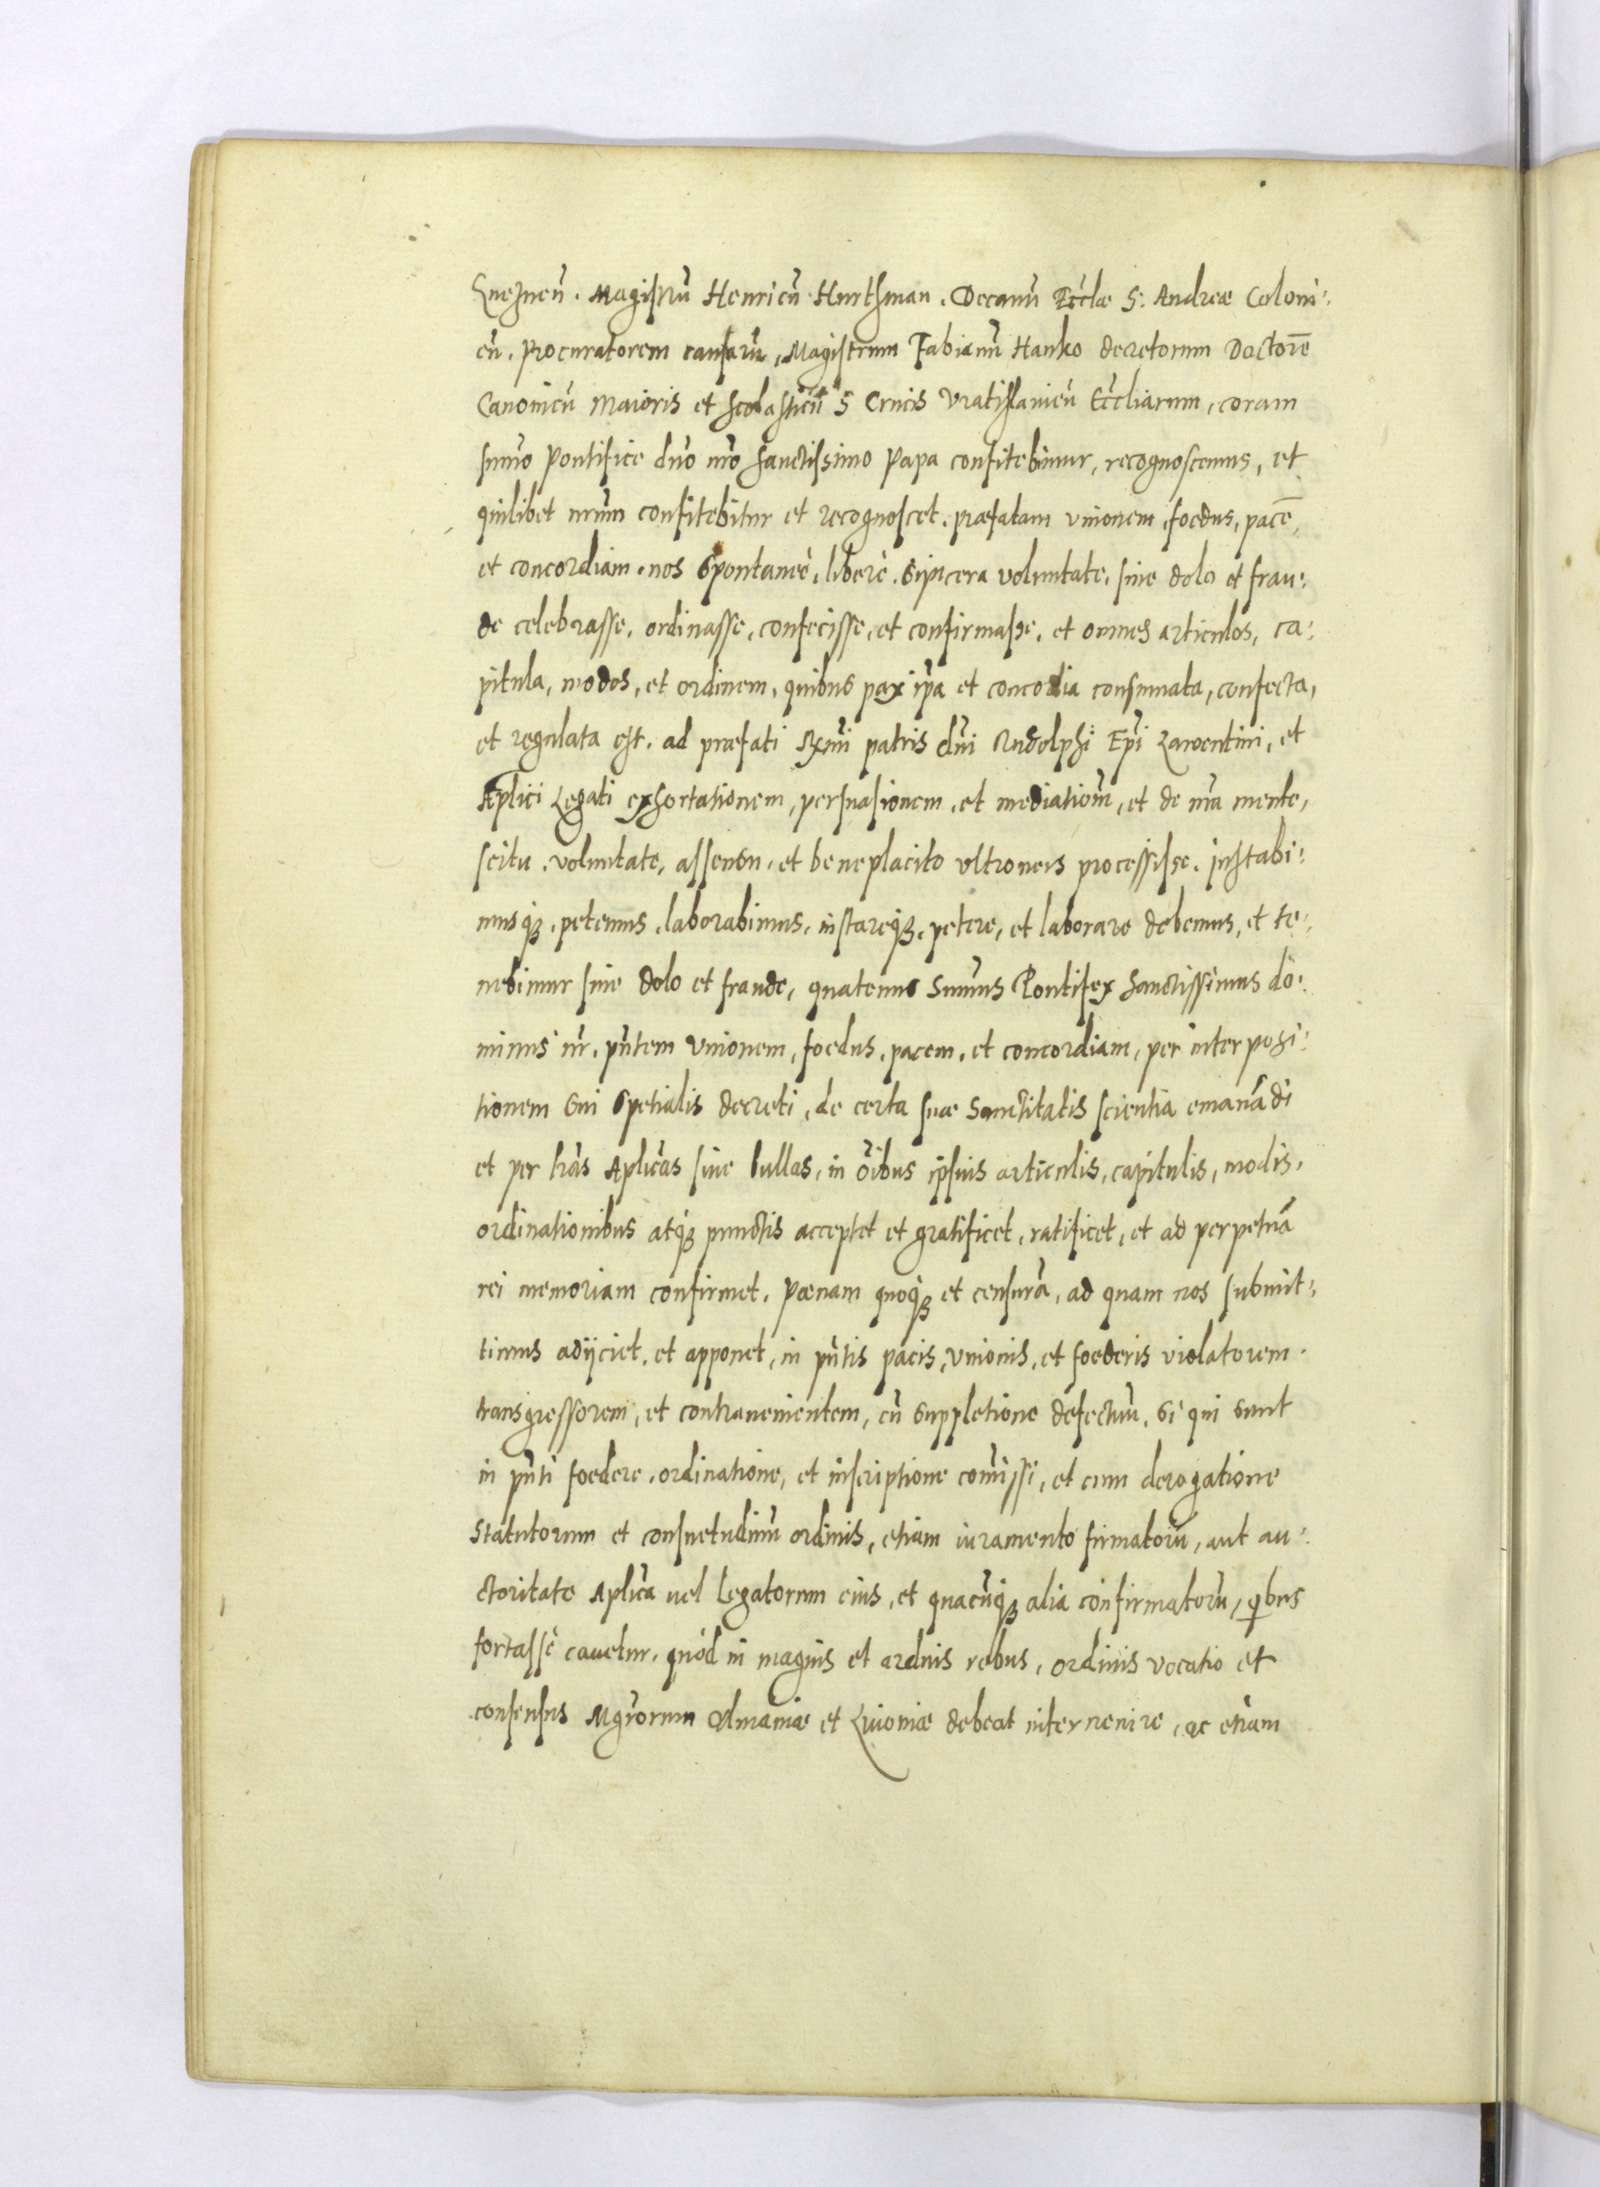 Magistrū Henricū Hurthman. Decanū Eccłae S: Andreae Coloni:
eñ. Procuratorem causarū, Magistrum Fabianū Hanko decretorum Doctorē
Canonicū Maioris et scolasticū S Crucis Vratislavieñ Eccliarum, coram
sumo Pontifice dño nro sanctissimo Papa confitebimur, recognoscemus, et
quilibet nrum confitebitur et recognoscet. praefatam unionem, foedus, pacē,
et concordiam. nos spontaneè, liberè. syncera voluntate, sine dolo et frau:
de celebrasse, ordinasse, confecisse, et confirmasse, et omnes articulos, ca:
pitula, modos, et ordinem, quibus pax ipa et concordia consumata, confecta,
et regulata est. ad praefati Rxmi patris dni Rudolphi Epi Lauentini, et
Aplici Legati exhortationem, persuasionem, et mediationē, et de nra mente,
scitu, voluntate, assensu, et beneplacito ultroneis processisse. instabi:
musq₃, petemus, laborabimus, instareq₃, petere, et laborare debemus, et te:
nebimur sine dolo et fraude, quatenus Sumus Pontifex sanctissimus do:
minus nr. pntem unionem, foedus, pacem, et concordiam, per interposi:
tionem sui spetialis decreti, de certa suae Sanctitatis scientia emanādi
et per lras Aplicas sive bullas, in oibus ipsius articulis, capitulis, modis,
ordinationibus atq₃ punctis acceptet et gratificet, ratificet, et ad perpetuā
rei memoriam confirmet. Poenam quoq₃ et censurā, ad quam nos submit:
timus adijciet, et apponet, in pntis pacis, unionis, et foederis violatorem.
transgressorem, et contravenientem, cū suppletione defectuū, si qui sunt
in pnti foedere, ordinatione, et inscriptione comissi, et cum derogatione
Statutorum et consuetudinū ordinis, etiam iuramento firmatorū, aut au:
ctoritate Aplica uel Legatorum eius, et quacūq₃ alia confirmatorū, qbus
fortassè cavetur, quòd in magnis et arduis rebus, ordinis vocatio et
consensus Mgrorum Almaniae et Livoniae debeat intervenire, ac etiam